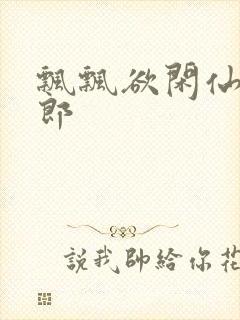 飄飄欲閑仙
郎
說我帥給你花